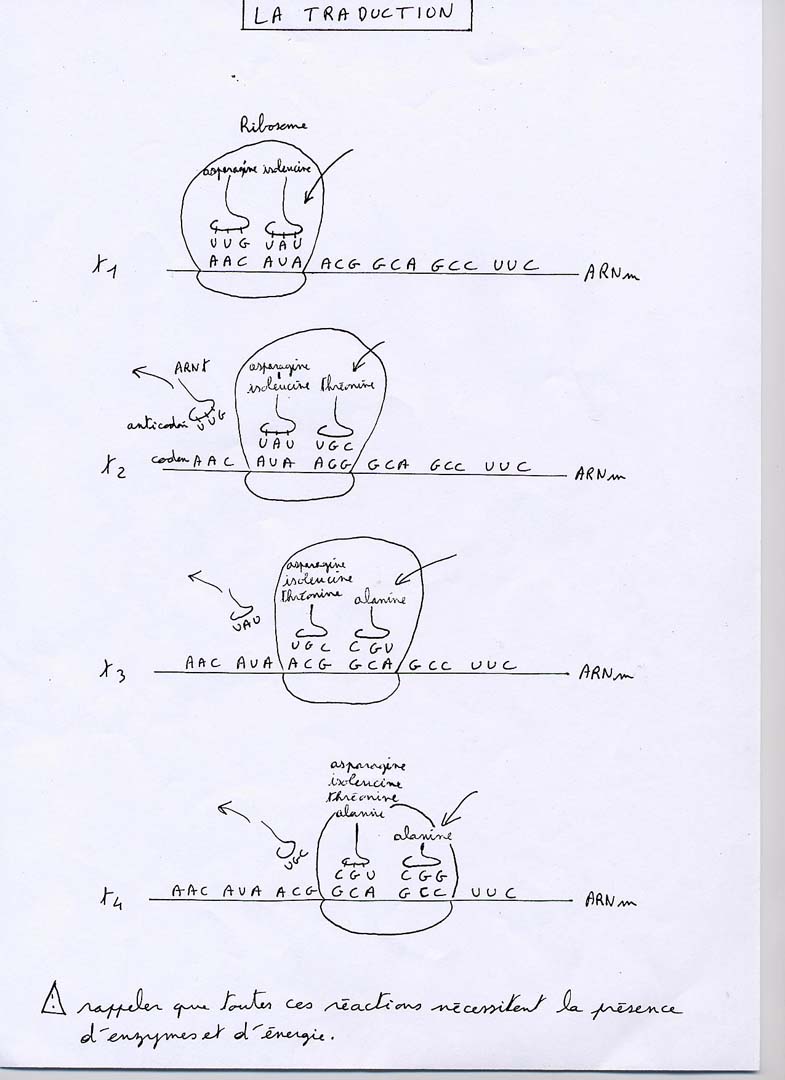 LA TRADUCTION
Ribosome
asparagine isoleucine
UUG UAU
t1 AAC AUA ACG GCA GCC UUC ARNm
ARNt asparagine
isoleucine thréonine
anticodon UUG
UAU UGC
t2 codon AAC AUA AGG GCA GCC UUC ARNm
asparagine
isoleucine
thréonine alanine
UAU
UGC CGU
t3 AAC AUA ACG GCA GCC UUC ARNm
asparagine
isoleucine
thréonine
alanine
alanine
UGC
CGU CGG
t4 AAC AUA ACG GCA GCC UUC ARNm
⚠ rappeler que toutes ces réactions nécessitent la présence
d'enzymes et d'énergie.